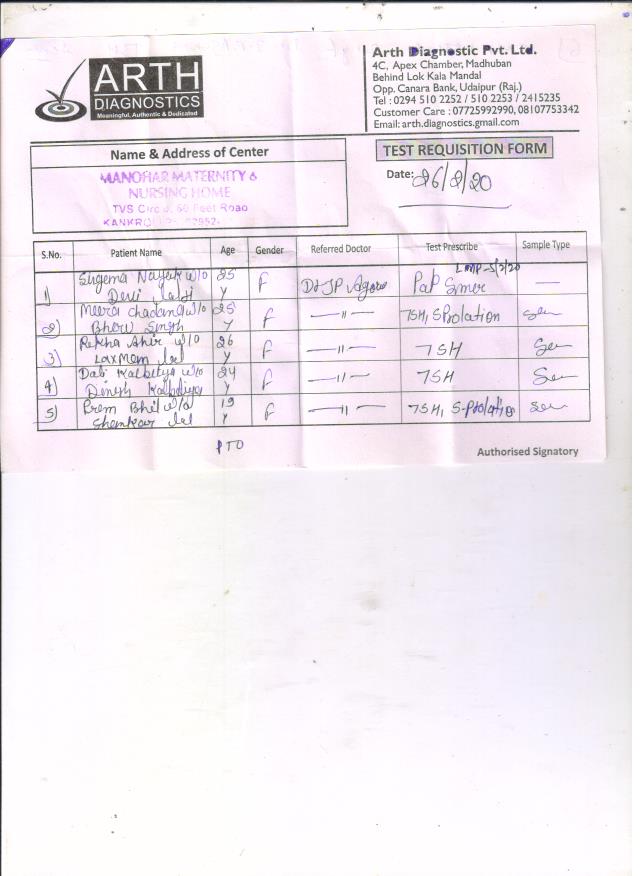 ARTH
DIAGNOSTICS
Meaningful, Authentic & Dedicated
Arth Diagnostic Pvt. Ltd.
4C, Apex Chamber, Madhuban
Behind Lok Kala Mandal
Opp. Canara Bank, Udaipur (Raj.)
Tel : 0294 510 2252 / 510 2253 / 2415235
Customer Care : 07725992990, 08107753342
Email: arth.diagnostics.gmail.com
Name & Address of Center
MANOHAR MATERNITY &
NURSING HOME
TVS Circle, 50 Feet Road
TEST REQUISITION FORM
Date: 26/2/20
S.No. Patient Name Age Gender Referred Doctor Test Prescribe Sample Type
LMP-5/2/20
1) Sugema Nayak w/o 25 F Dr JP Agarw Pap Smer —
Devi Lalji Y
2) Meera Chadana w/o 25 F —11— TSH, SProlation Sen
Bheru Singh Y
3) Rekha Ahir w/o 26 F —11— TSH Sen
Laxmem lal Y
4) Dali Kalbitya w/o 24 F —11— TSH Sen
Dinesh Kalbeliya Y
5) Prem Bhil w/o 19 F —11— TSH, S-Prolation Sen
Shenkar lal Y
PTO
Authorised Signatory